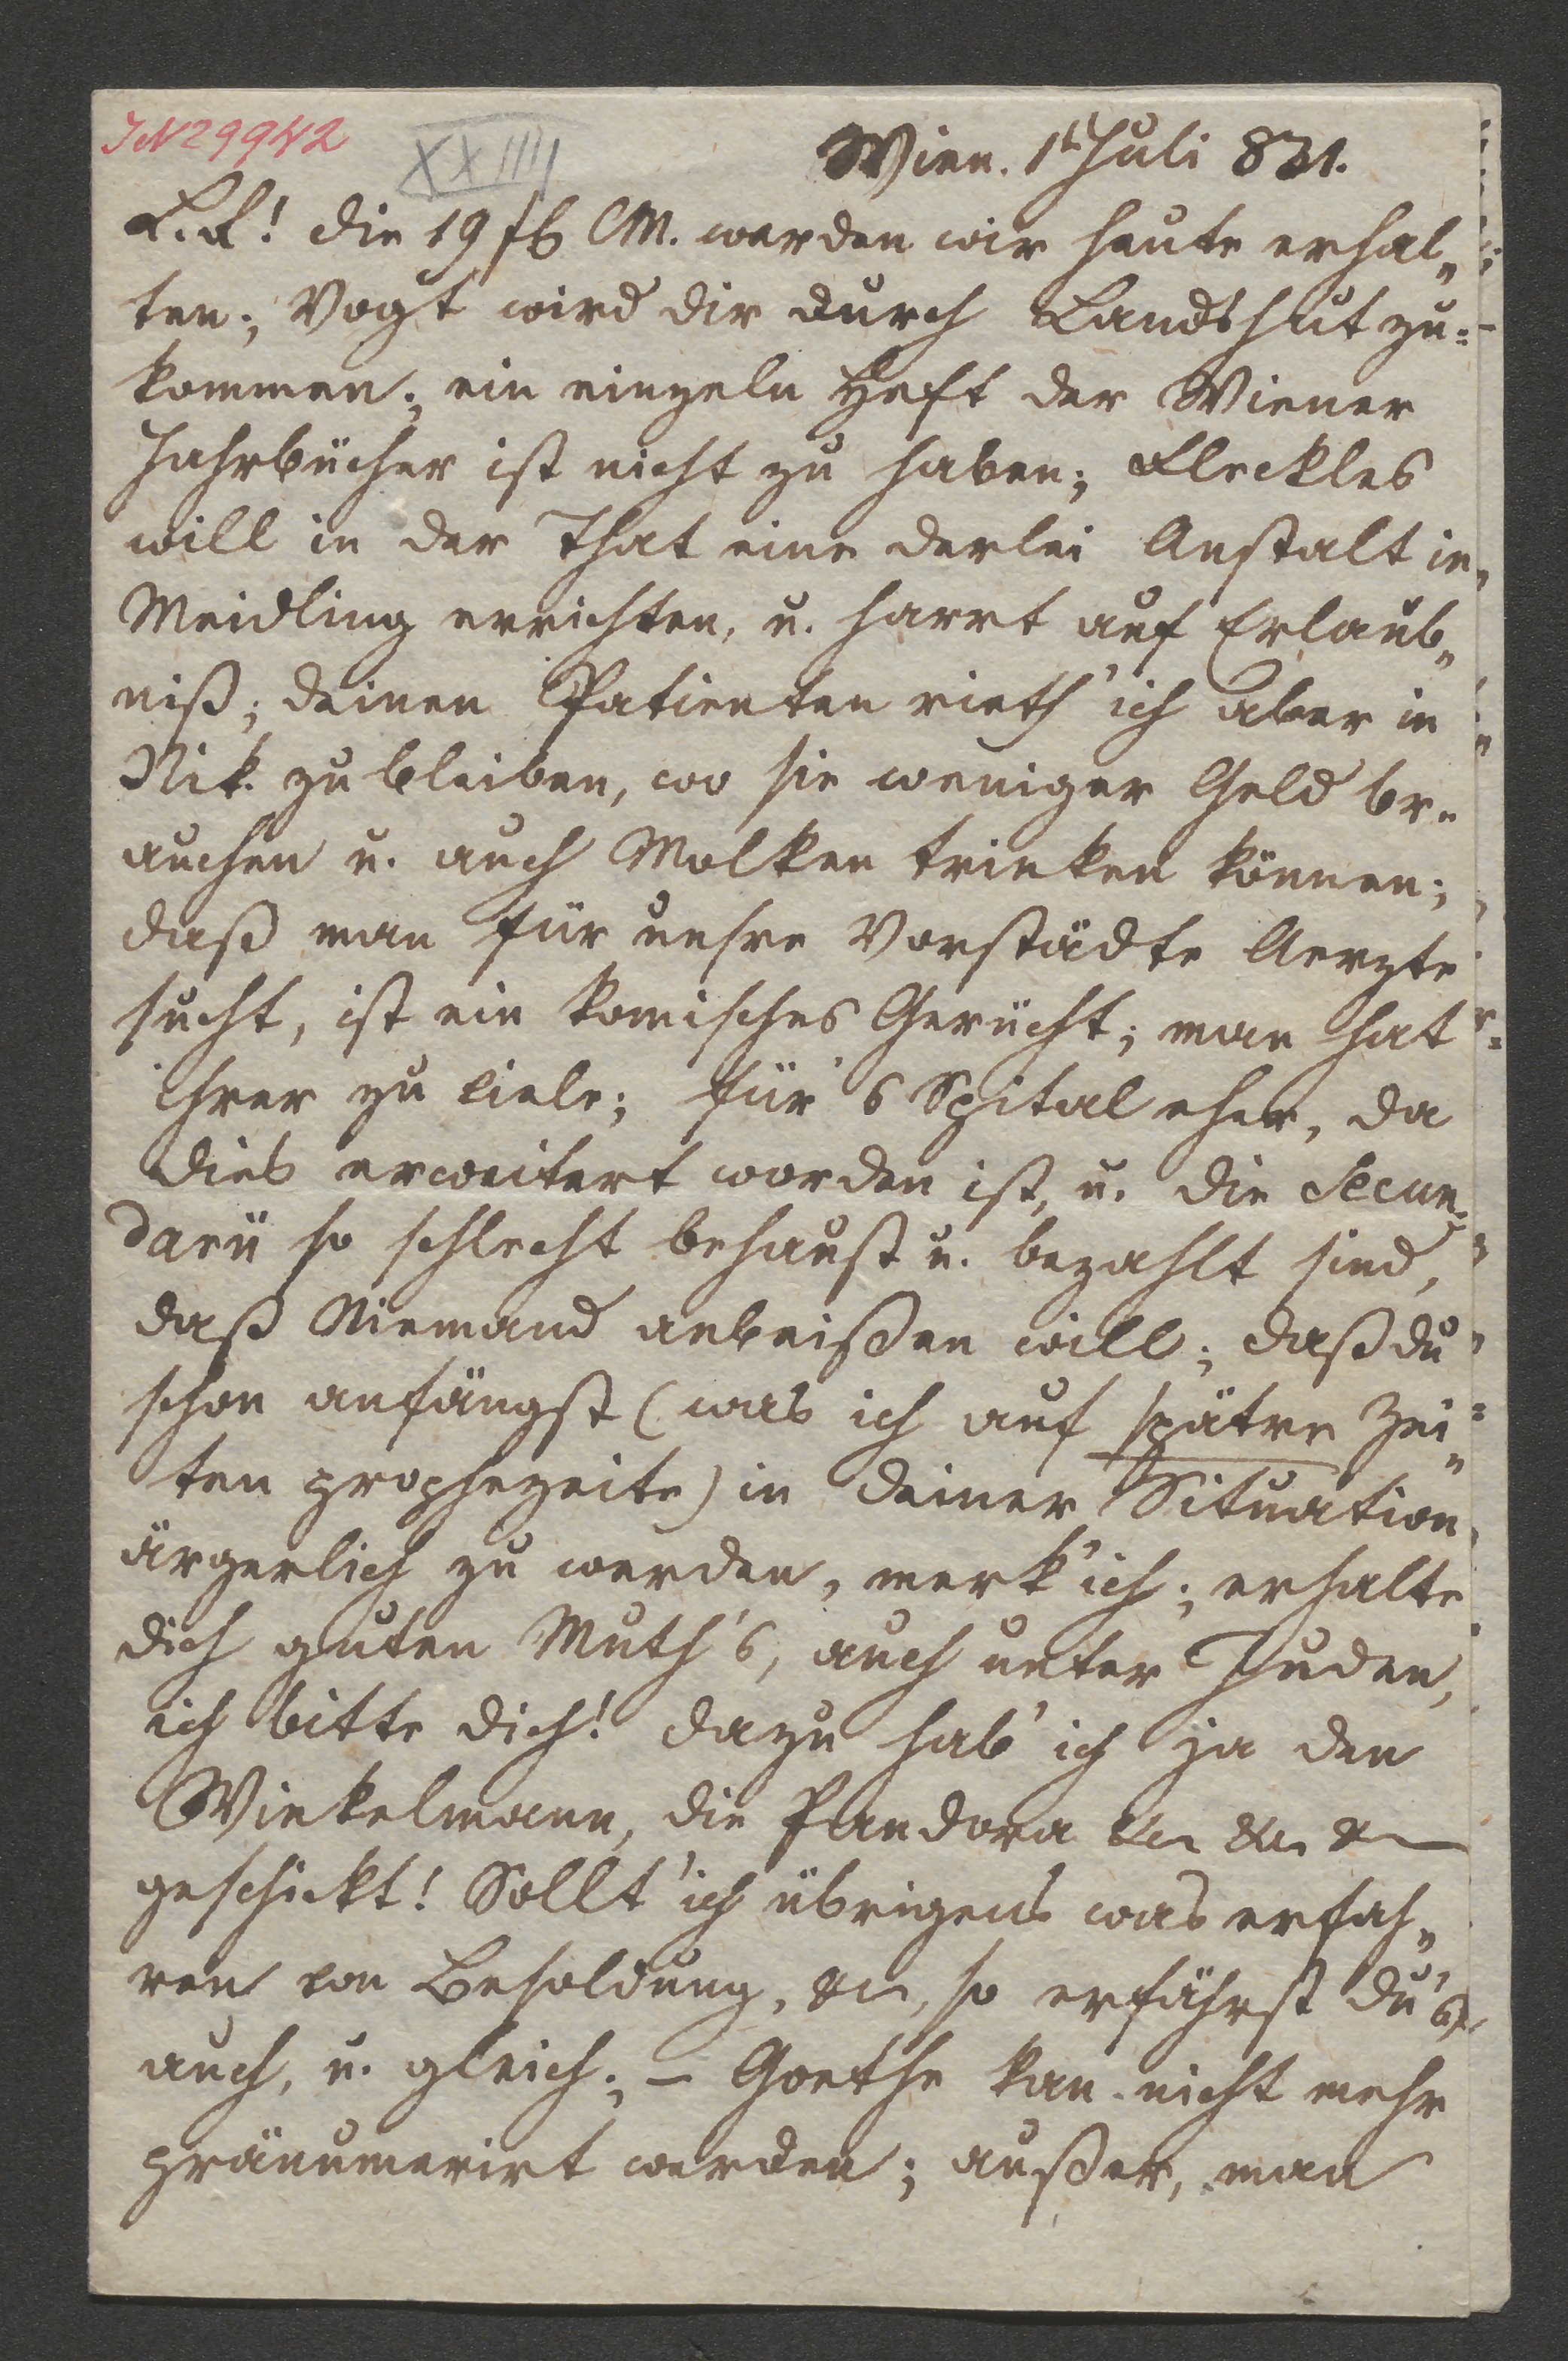 IN 29942
XXIIII
Wien. 1t Juli 831.
L. L! die 19 f CM. werden wir heute erhal„
ten; Vogt wird dir durch Landshut zu=
kommen; ein einzeln Heft der Wiener
Jahrbücher ist nicht zu haben; Fleckles
will in der That eine derlei Anstalt in
Meidling errichten, u. harrt auf Erlaub„
niß; deinen Patienten rieth' ich aber in
Nik. zu bleiben, wo sie weniger Geld br„
auchen u. auch Molken trinken können;
daß man für unsre Vorstädte Aerzte
sucht, ist ein komisches Gerücht; man hat
ihrer zu viele; für's Spital eher, da
dies erweitert worden ist, u. die Secun„
darii so schlecht behaust u. bezahlt sind,
daß Niemand anbeißen will; daß du
schon anfängst (was ich auf spätre Zei„
ten prophezeite) in deiner Situation
ärgerlich zu werden, merk' ich; erhalte
dich guten Muth's, auch unter Juden,
ich bitte dich! dazu hab' ich ja den
Winkelmann, die Pandora &c &c &c
geschickt! Sollt' ich übrigens was erfah„
ren von Besoldung, &c, so erfährst du's
auch, u. gleich; – Goethe kan nicht mehr
pränumerirt werden; außer, man